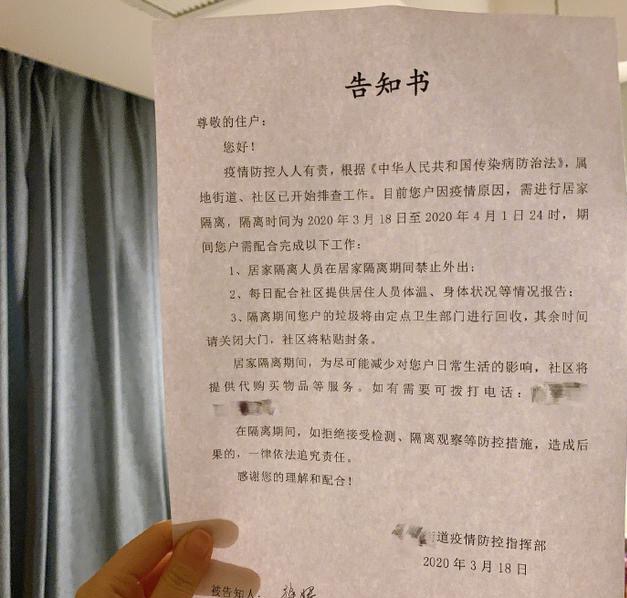 告知书
尊敬的住户：
您好！
疫情防控人人有责，根据《中华人民共和国传染病防治法》，属
地街道、社区已开始排查工作。目前您户因疫情原因，需进行居家
隔离，隔离时间为 2020 年 3 月 18 日至 2020 年 4 月 1 日 24 时，期
间您户需配合完成以下工作：
1、居家隔离人员在居家隔离期间禁止外出；
2、每日配合社区提供居住人员体温、身体状况等情况报告；
3、隔离期间您户的垃圾将由定点卫生部门进行回收，其余时间
请关闭大门，社区将粘贴封条。
居家隔离期间，为尽可能减少对您户日常生活的影响，社区将
提供代购买物品等服务。如有需要可拨打电话：
在隔离期间，如拒绝接受检测、隔离观察等防控措施，造成后
果的，一律依法追究责任。
感谢您的理解和配合！
道疫情防控指挥部
2020 年 3 月 18 日
被告知人：